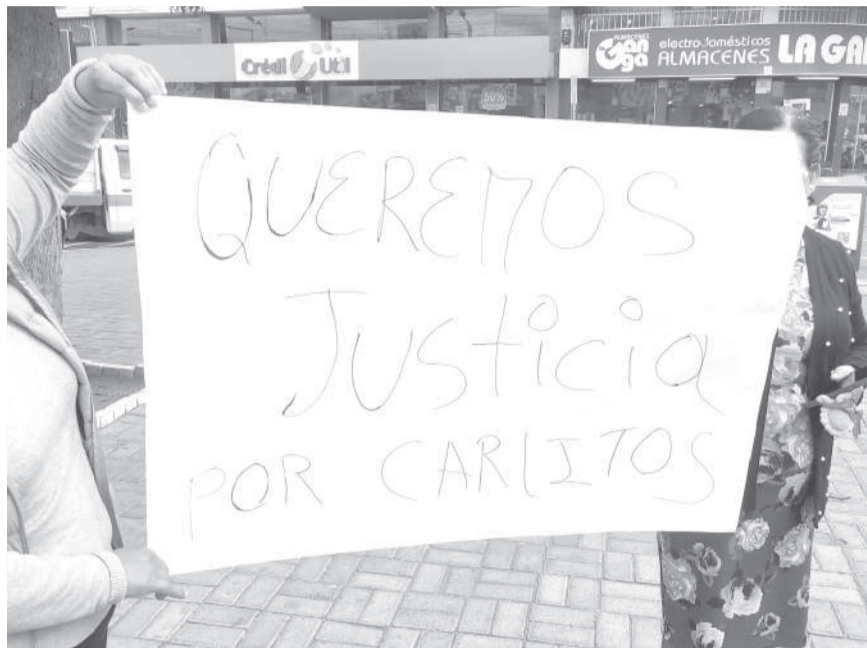 Crédi Util
ALMACENES
Ganga
electrodomésticos
ALMACENES LA GA
50%
QUEREMOS
Justicia
POR CARLITOS